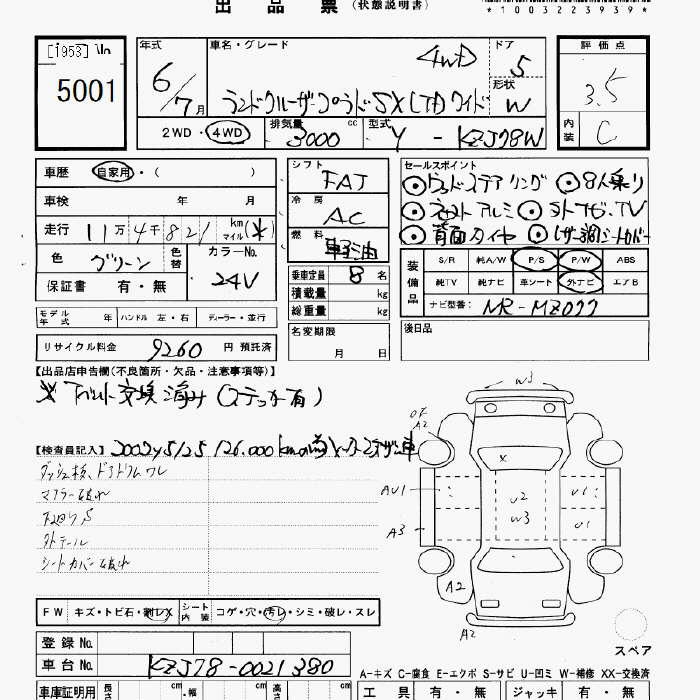 出 品 票 (状態説明書)
*1003223939*
[1953] 1/n
5001
年式 6/7月
車名・グレード 4WD
ランドクルーザープラド SX LTD ワイド
ドア 5
形状 W
2WD・4WD 排気量 3000 cc 型式 Y - KZJ78W
評価点 3.5
内装 C
車歴 自家用・( )
車検 年 月
走行 11万4千821 km マイル (※)
色 グリーン 色替 カラーNo. 24V
保証書 有・無
シフト FAT
冷房 AC
燃料 軽油
乗車定員 8 名
積載量 kg
総重量 kg
名変期限 月 日
セールスポイント
ウッドステアリング 8人乗り
アルミ 外ナビ.TV
背面タイヤ レザー調シートカバー
装備品 S/R 純A/W P/S P/W ABS
純TV 純ナビ 革シート 外ナビ エアB
ナビ型番: NR-MZ077
後日品
モデル年式 年 ハンドル 左・右 ディーラー・並行
リサイクル料金 9260 円 預託済
【出品店申告欄(不良箇所・欠品・注意事項等)】
※ Tベルト交換済み (ステッカー有)
【検査員記入】 2002y5/25 126.000km 車
マフラー破れ
下回りS
シートカバー破れ
W3
OF A2
AU1
A3
U2
W3
U1
U1
X
A2
A2
スペア
FW キズ・トビ石・割レX シート内装 コゲ・穴・汚レ・シミ・破レ・スレ
登録 No.
車台 No. KZJ78-0021380
A-キズ C-腐食 E-エクボ S-サビ U-凹ミ W-補修 XX-交換済
車庫証明用 長さ cm ・幅 cm 高さ cm
工具 有・無 ジャッキ 有・無